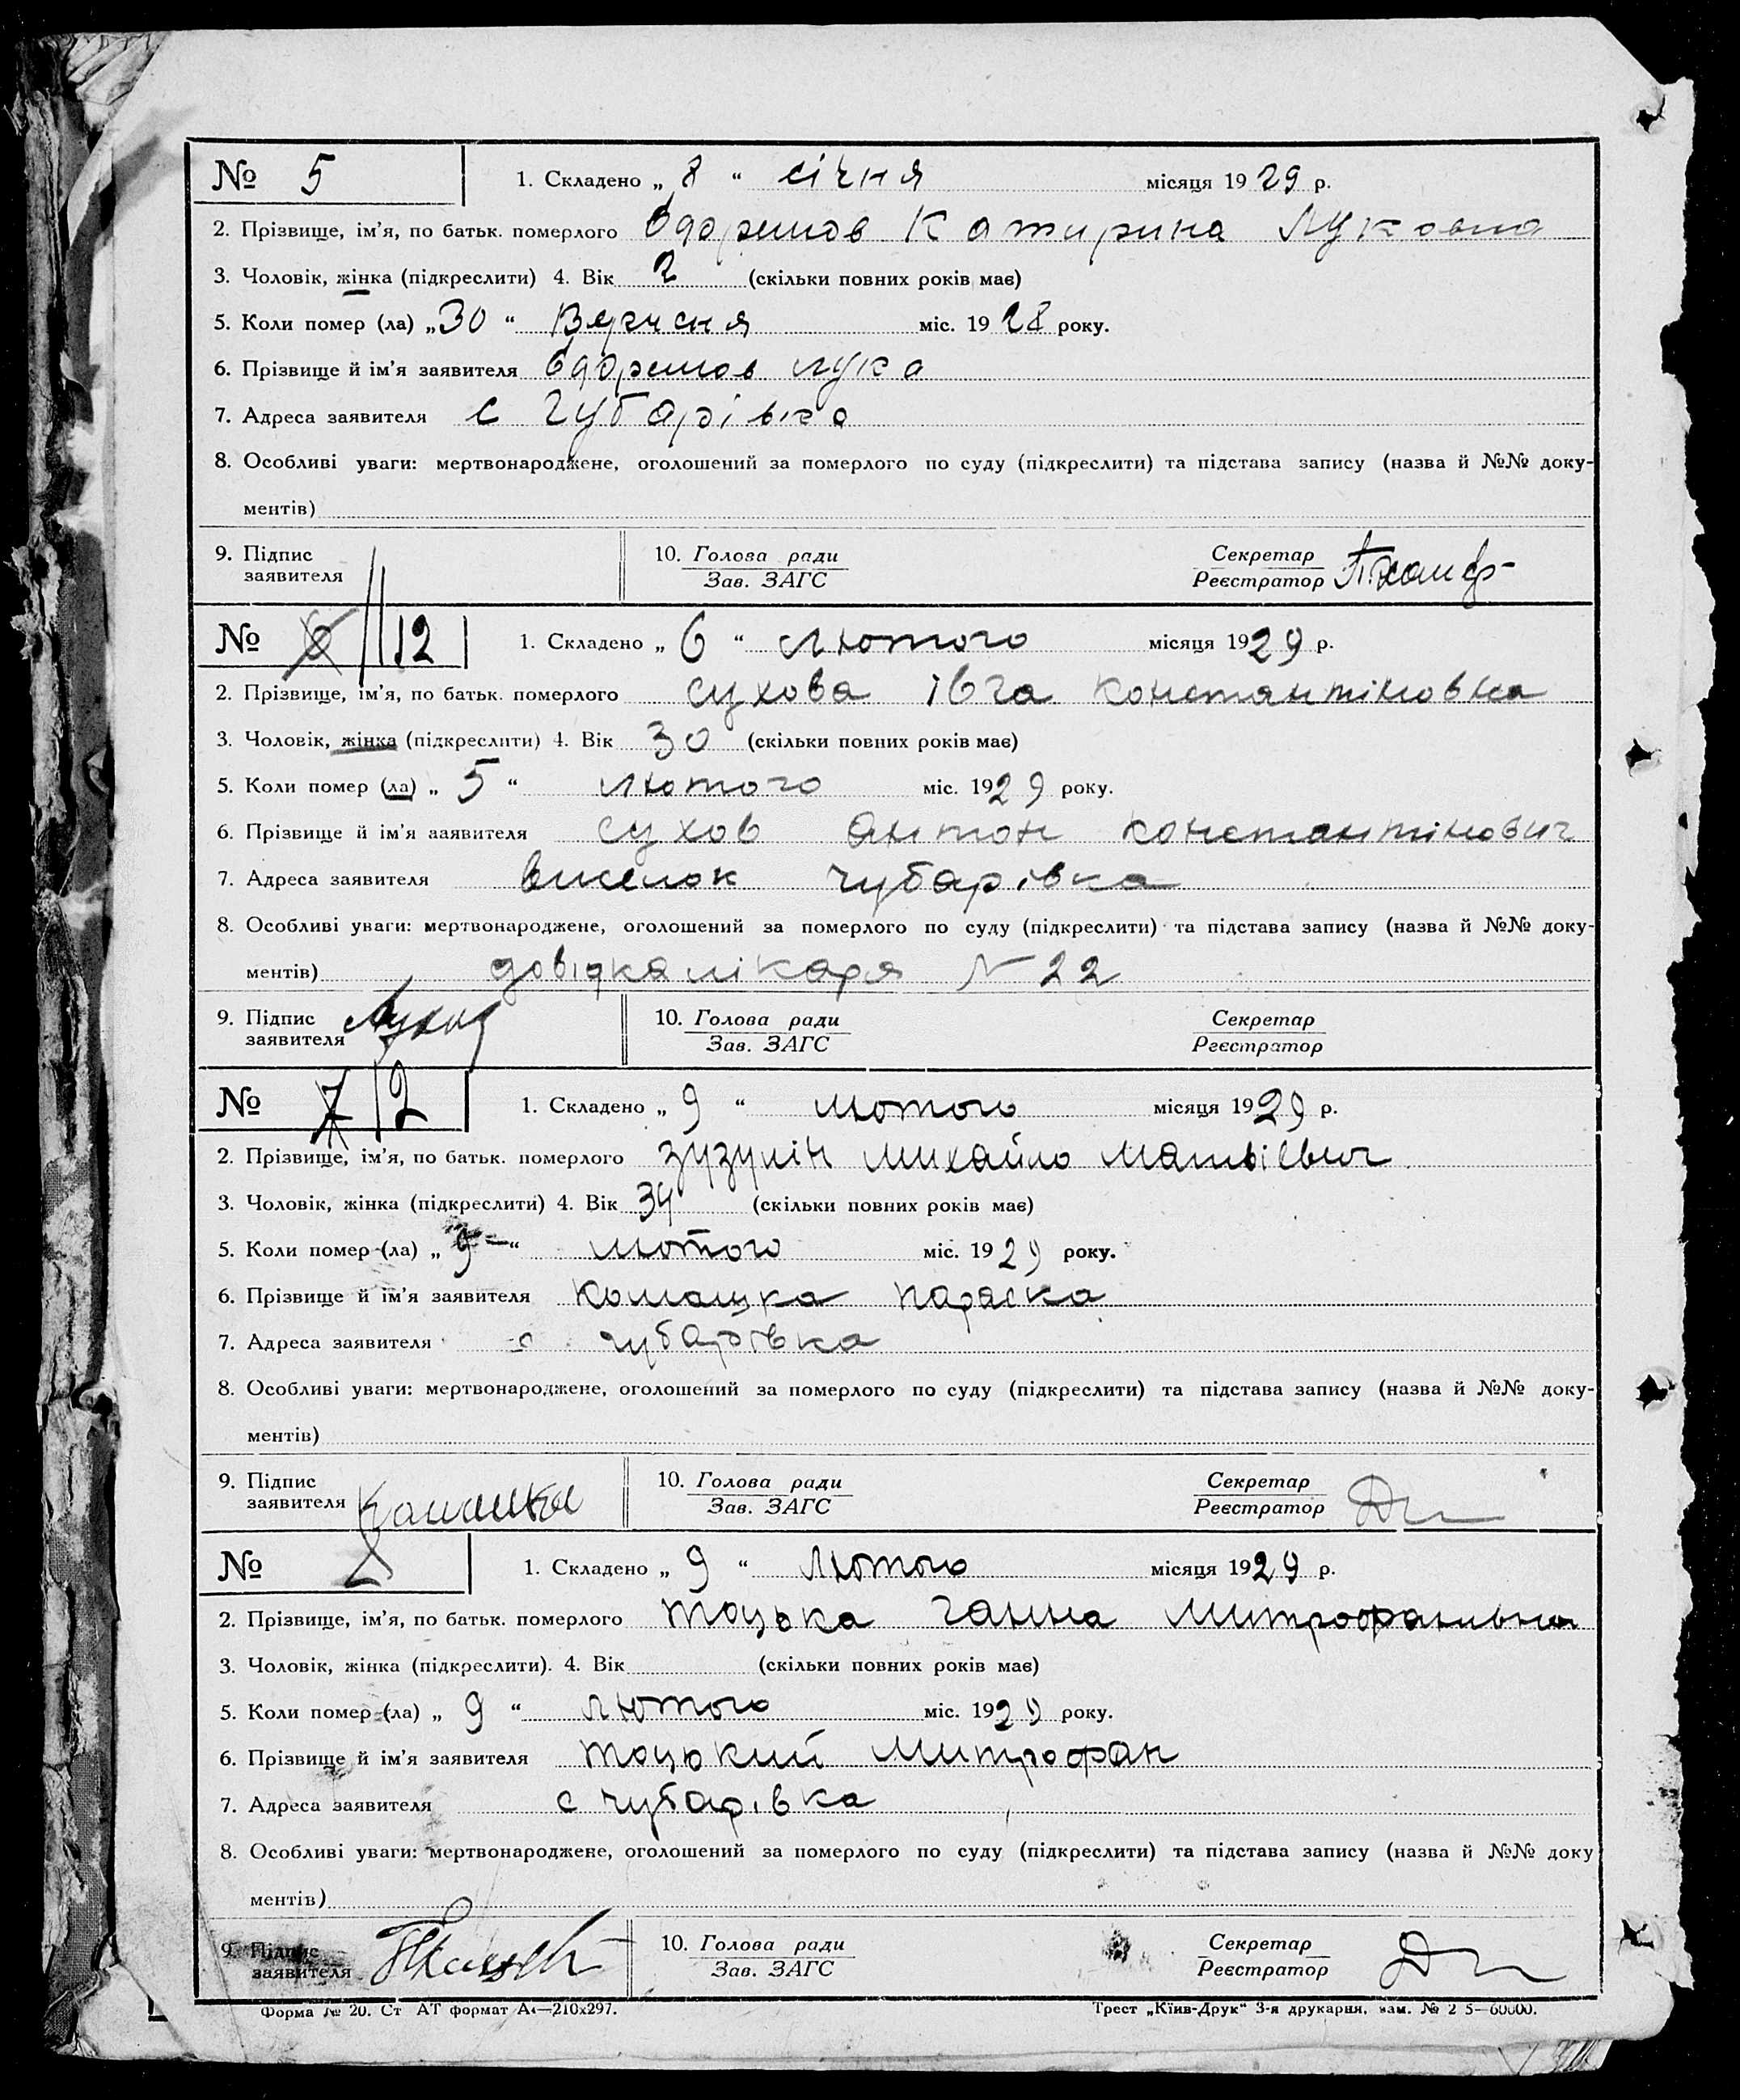 № 5 1. Складено „ 8 “ січня місяця 1929 р.
2. Прізвище, ім’я, по батьк. померлого Катирина Луковна
3. Чоловік, жінка (підкреслити) 4. Вік 2 (скільки повних років має)
5. Коли помер (ла) „30“ міс. 1928 року.
6. Прізвище й ім’я заявителя лука
7. Адреса заявителя с Чубарівка
8. Особливі уваги: мертвонароджене, оголошений за померлого по суду (підкреслити) та підстава запису (назва й №№ доку-
ментів)
9. Підпис 10. Голова ради Секретар
заявителя Зав. ЗАГС Реєстратор
№ 6 12 1. Складено „ 6 “ лютого місяця 1929 р.
2. Прізвище, ім’я, по батьк. померлого сухова івга константіновна
3. Чоловік, жінка (підкреслити) 4. Вік 30 (скільки повних років має)
5. Коли помер (ла) „ 5 “ лютого міс. 1929 року.
6. Прізвище й ім’я заявителя сухов антон константінович
7. Адреса заявителя виселок чубарівка
8. Особливі уваги: мертвонароджене, оголошений за померлого по суду (підкреслити) та підстава запису (назва й №№ доку-
ментів) довідка лікаря N 22
9. Підпис 10. Голова ради Секретар
заявителя Зав. ЗАГС Реєстратор
№ 7 2 1. Складено „ 9 “ лютого місяця 1929 р.
2. Прізвище, ім’я, по батьк. померлого зузулін михайло матвієвич
3. Чоловік, жінка (підкреслити) 4. Вік 34 (скільки повних років має)
5. Коли помер (ла) „ 9 “ лютого міс. 1929 року.
6. Прізвище й ім’я заявителя параска
7. Адреса заявителя с чубарівка
8. Особливі уваги: мертвонароджене, оголошений за померлого по суду (підкреслити) та підстава запису (назва й №№ доку-
ментів)
9. Підпис 10. Голова ради Секретар
заявителя Зав. ЗАГС Реєстратор
№ 1. Складено „ 9 “ лютого місяця 1929 р.
2. Прізвище, ім’я, по батьк. померлого тоцька ганна митрофанивна
3. Чоловік, жінка (підкреслити). 4. Вік (скільки повних років має)
5. Коли помер (ла) „ 9 “ лютого міс. 1929 року.
6. Прізвище й ім’я заявителя тоцький митрофан
7. Адреса заявителя с чубарівка
8. Особливі уваги: мертвонароджене, оголошений за померлого по суду (підкреслити) та підстава запису (назва й №№ доку
ментів)
9. Підпис 10. Голова ради Секретар
заявителя Зав. ЗАГС Реєстратор
Форма № 20. Ст АТ формат А4—210х297. Трест „Київ-Друк“ 3-я друкарня, зам. № 2 5—60000.